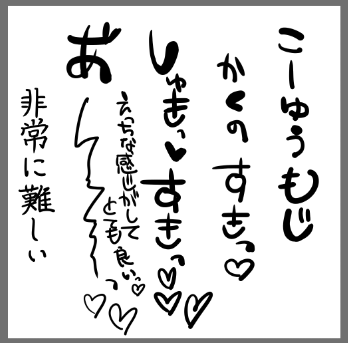 こーゆうもじ
かくのすきっ♡
しゅきっ♥すきっ♡♡♡
えっちな感じがして
とても良いっ♡
あ〜〜〜〜っ♡♡
非常に難しい